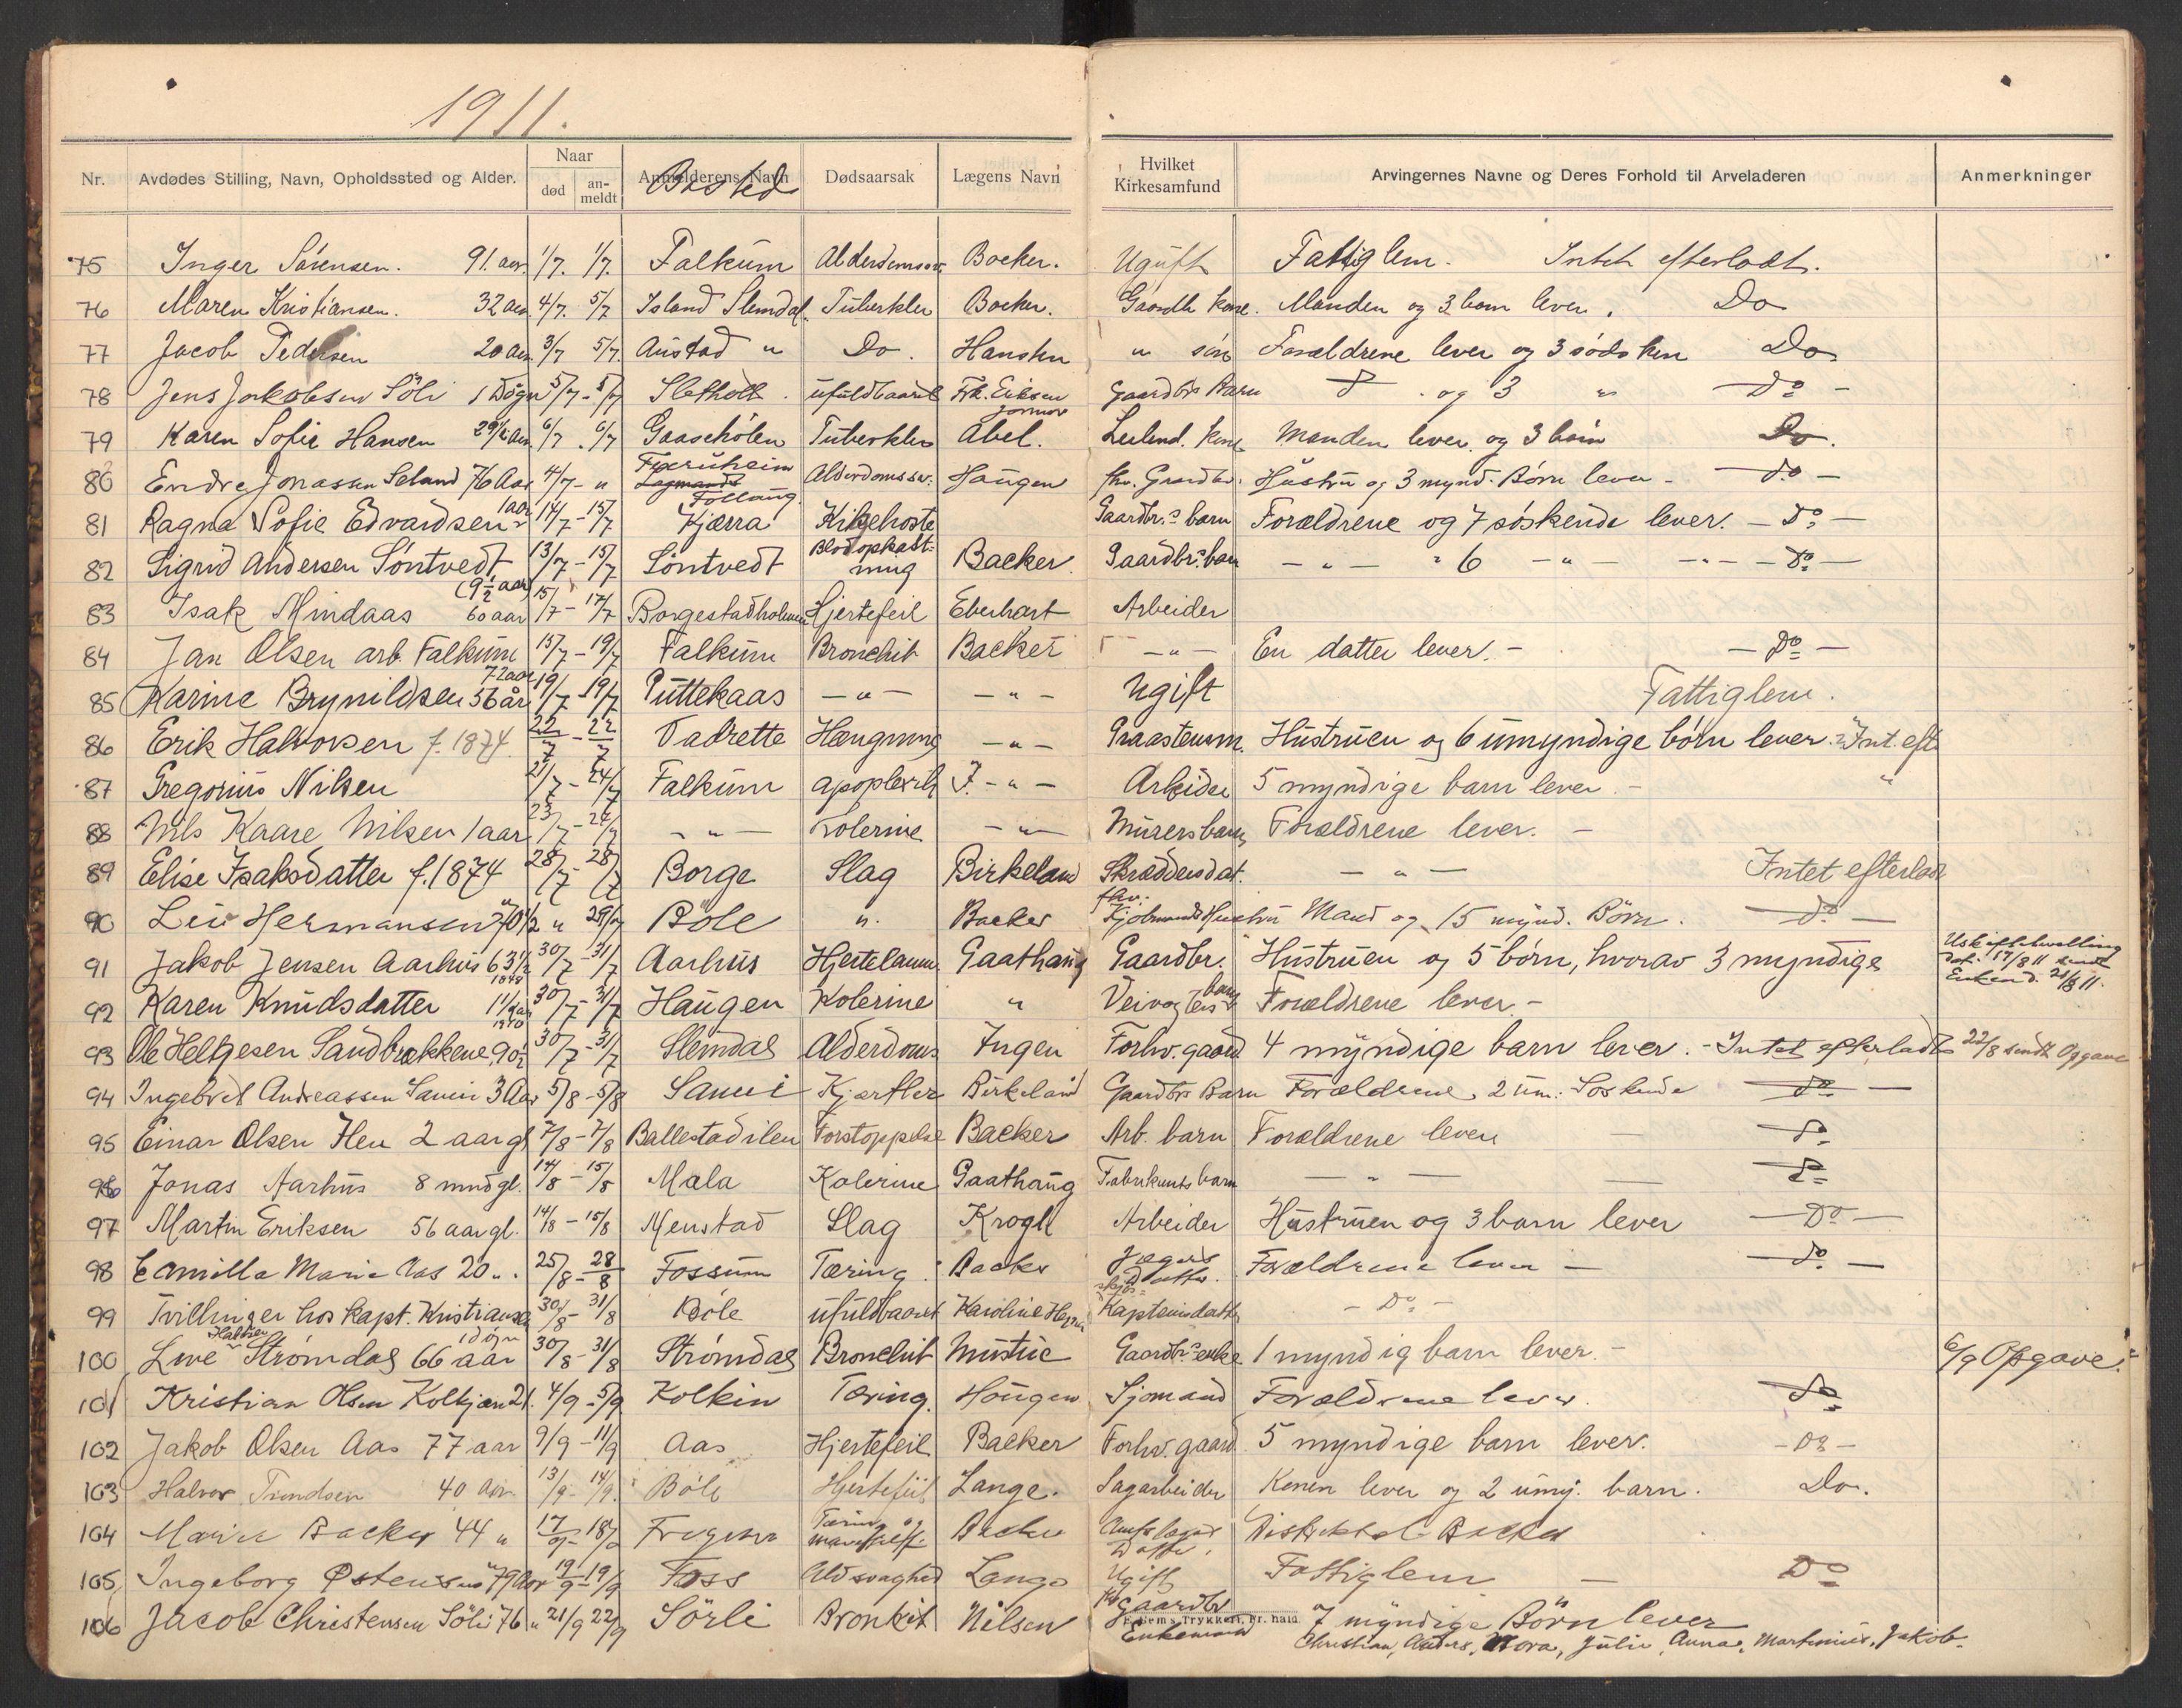 1911.
Nr. Avdødes Stilling, Navn, Opholdssted og Alder. Naar død an-meldt Anmelderens Navn Bosted Dødsaarsak Lægens Navn Hvilket Kirkesamfund Arvingernes Navne og Deres Forhold til Arveladeren Anmerkninger
75 Inger Sørensen. 91. aar 1/7. 1/7. Falkum Alderdomssv. Backer. Ugift Fattiglem. Intet efterladt.
76 Maren Kristiansen. 32 aar 4/7. 5/7 Island Slemdal. Tuberkler Backer. Gaardb. kone. Manden og 3 barn lever. Do
77 Jacob Pedersen 20 aar 3/7 5/7. Austad " Do. Hansen " søn Forældrene lever og 3 sødsken Do
78 Jens Jakobsen Söli 1 Døgn 5/7 - 5/7 Sletholt. ufuldbaaret Frk. Eriksen Jormor Gaardbr Barn d° og 3 " d° -
79 Karen Sofie Hansen 29 1/2 aar 6/7. 6/7 Gaasehölen Tuberkler Abel. Leilend. kone Manden lever og 3 barn Do.
80 Endre Jonassen Seland 76 Aar 4/7 - " Fjæruheim Follaug Alderdomssv. Haugen fhv. Gaardbr. Hustru og 3 mynd. Børn lever - d° -
81 Ragna Sofie Edvardsen 1 aar 14/7 - 15/7 Kjærra Kighoste Gaardbr.s barn Forældrene og 7 søskende lever. - D° -
82 Sigrid Andersen Söntvedt (9 1/2 aar) 13/7 - 15/7 Söntvedt Blodopkastning Backer Gaardbr.s barn - " - " 6 - " - - " - - D° -
83 Isak Mindaas 60 aar 15/7 - 17/7 Borgestadholmen Hjertefeil Eberhart Arbeider
84 Jan Olsen arb. Falkum 72 aar 15/7 - 19/7 Falkum Bronchit Backer - " - En datter lever. - - D° -
85 Karine Brynildsen 56 år 19/7 - 19/7 Puttekaas - " - - " - Ugift Fattiglem.
86 Erik Halvorsen f. 1874 22/7 - 22/7 Vadrette Hængning - " - Graastensm. Hustruen og 6 umyndige børn lever. Int. eft
87 Gregorius Nilsen 21/7 - 24/7 Falkum apoplexih J. - " - Arbeider 5 myndige barn lever. - "
88 Nils Kaare Nilsen 1 aar 23/7 - 24/7 - " - Kolerine - " - Murers barn Forældrene lever. -
89 Elise Isaksdatter f. 1874 28/7 28/7 Borge Slag Birkeland Skræddersdat. - " - Intet efterladt
90 Liv Hermansen 70 1/2 " 29/7 Böle ". Backer fhv. Hustru Mand og 15 mynd. Børn. - d° -
91 Jakob Jensen Aarhus 63 1/2 1848 30/7 - 31/7 Aarhus Hjertelam. Gaathaug Gaardbr. Hustruen og 5 børn, hvorav 3 myndige Uskiftebevilling dat. 17/8 11 sendt Enken d. 21/8 11.
92 Karen Knudsdatter 1 1/2 aar 1910 30/7 - 31/7 Haugen Kolerine " barn Forældrene lever. -
93 Ole Helgesen Sandbrækkene 90 1/2 30/7 - 31/7 Slemdal Alderdoms Ingen Forhv. gaard 4 myndige barn lever. - Intet efterladt 22/8 sendt Opgave
94 Ingebret Andreassen Sanni 3 Aar 5/8 - 5/8 Sanni Kjertler Birkeland Gaardbrs Barn Forældrene, 2 um. Søskende - d° -
95 Einar Olsen Hen 2 aar gl 7/8 - 7/8 Ballestadilen Forstoppelse Backer Arb. barn Forældrene lever - d°
96 Jonas Aarhus 8 mnd gl. 14/8 - 15/8 Mæla Kolerine Gaathaug Fabrikants barn - " - - d°
97 Martin Eriksen 56 aar gl. 14/8 - 15/8 Menstad Slag Krogh Arbeider Hustruen og 3 barn lever - D° -
98 Camilla Marie Aas 20 ". 25/8 - 28/8 Fossum Tæring. Backer Jægers Datter. Forældrene lever - - d° -
99 Tvillinger hos Kapt. Kristiansen 1 døgn 30/8 - 31/8 Böle ufuldbaaret Karoline skibs- Kapteinsdattr - D° -
100 Live Halvor Strømdal 66 aar 30/8 - 31/8 Strømdal Bronchit Mustue Gaardbr.s enke 1 myndig barn lever. - 6/9 Opgave.
101 Kristian Olsen Kolkjæn 21. 4/9 - 5/9 Kolkin Tæring. Haugen Sjömand Forældrene lever. d°
102 Jakob Olsen Aas 77 aar 9/9 - 11/9 Aas Hjertefeil Backer Forhv. gaard 5 myndige barn lever. - D° -
103 Halvor Trondsen 40 Aar 13/9 - 14/9. Böle Hjertefeil Lange. Sagarbeider Konen lever og 2 umy. barn. Do.
104 Marie Backer 44 " 17/9 - 18/9 Frogner Tæring og Backer Amtslæge Datter. Distriktsl. Backer
105 Ingeborg Østensen 79 Aar 19/9 - 19/9 Foss Ald svaghed Lange Ugift Fattiglem - D°
106 Jacob Christensen Söli 76 " 21/9 22/9 Sörli Bronkit Nilsen fhv Gaardbr Enkemand 7 myndige Børn lever
Christian, Anders, Nora, Julie, Anna, Martinius, Jakob.